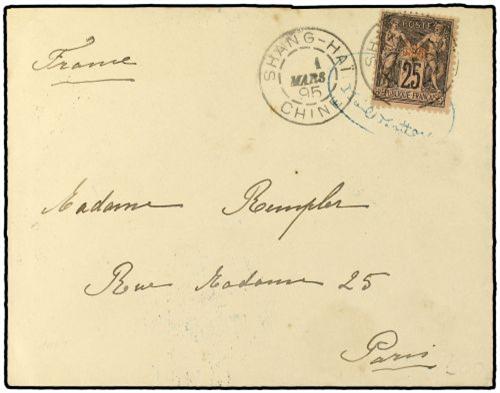 France
SHANG-HAÏ
1
MARS
95
CHINE
POSTE
25
REPUBLIQUE FRANCAISE
Madame Rempler
Rue Madame 25
Paris